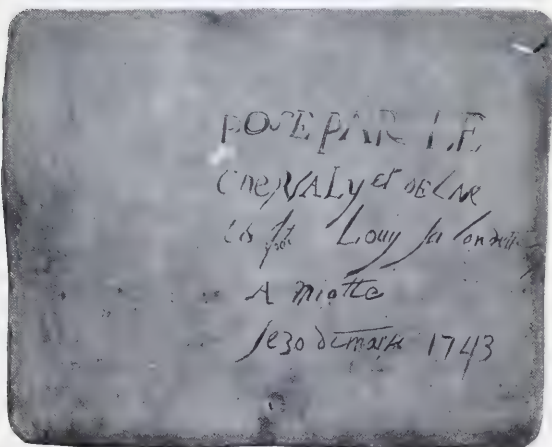 POSE PAR LE
CheVALyet DE LAVE
Louy la Londette
A miotte
le 30 de mars 1743